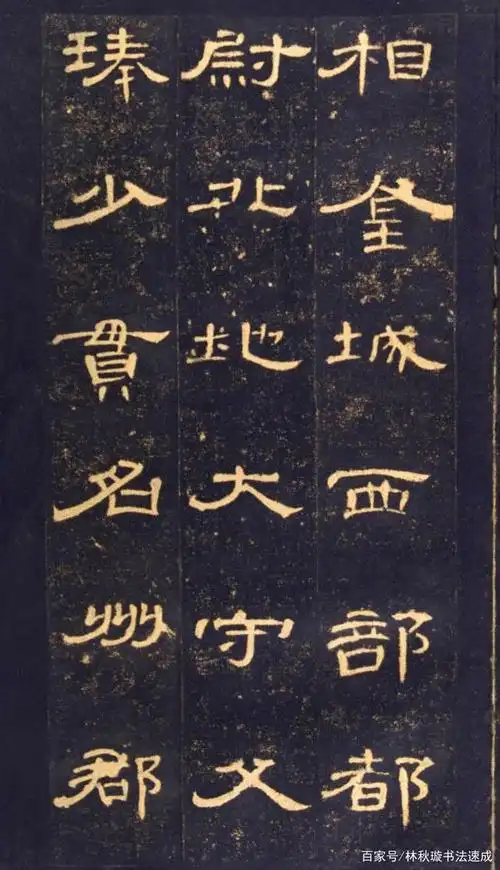 相金城西部都
尉北地大守父
琫少貫名州郡
百家号/林秋璇书法速成